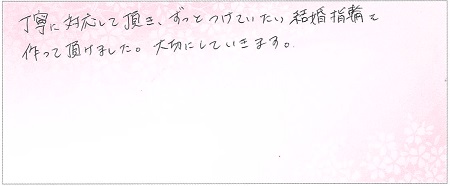 丁寧に対応して頂き、ずっとつけていたい結婚指輪を
作って頂けました。大切にしていきます。